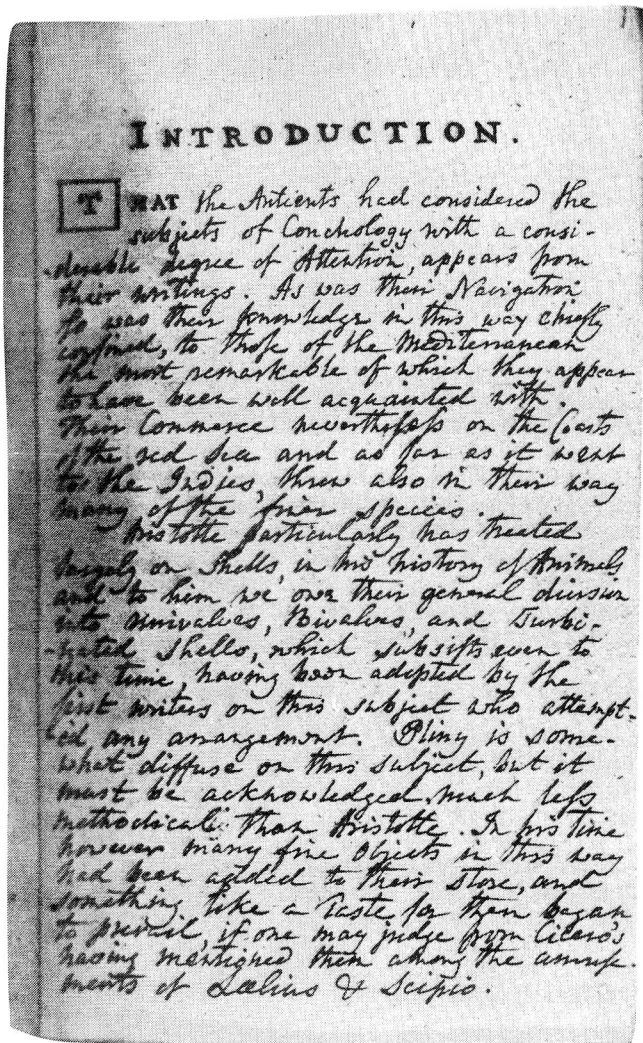 INTRODUCTION.
THAT the Antients had considered the
subjects of Conchology with a consi-
-derable degree of Attention, appears from
their writings. As was their Navigation
so was their knowledge in this way chiefly
confined, to those of the Mediterranean
the most remarkable of which they appear
to have been well acquainted with.
Their Commerce nevertheless on the Coasts
of the red Sea and as far as it went
to the Indies, threw also in their way
many of the finer species.
Aristotle particularly has treated
largely on Shells, in his history of Animals
and to him we owe their general division
into Univalves, Bivalves, and Turbi-
-nated Shells, which subsists even to
this time, having been adopted by the
first writers on this subject who attempt-
-ed any arrangement. Pliny is some-
what diffuse on this subject, but it
must be acknowledged much less
methodical than Aristotle. In his time
however many fine Objects in this way
had been added to their store, and
something like a Taste for them began
to prevail, if one may judge from Cicero's
having mentioned them among the amuse-
ments of Lælius & Scipio.